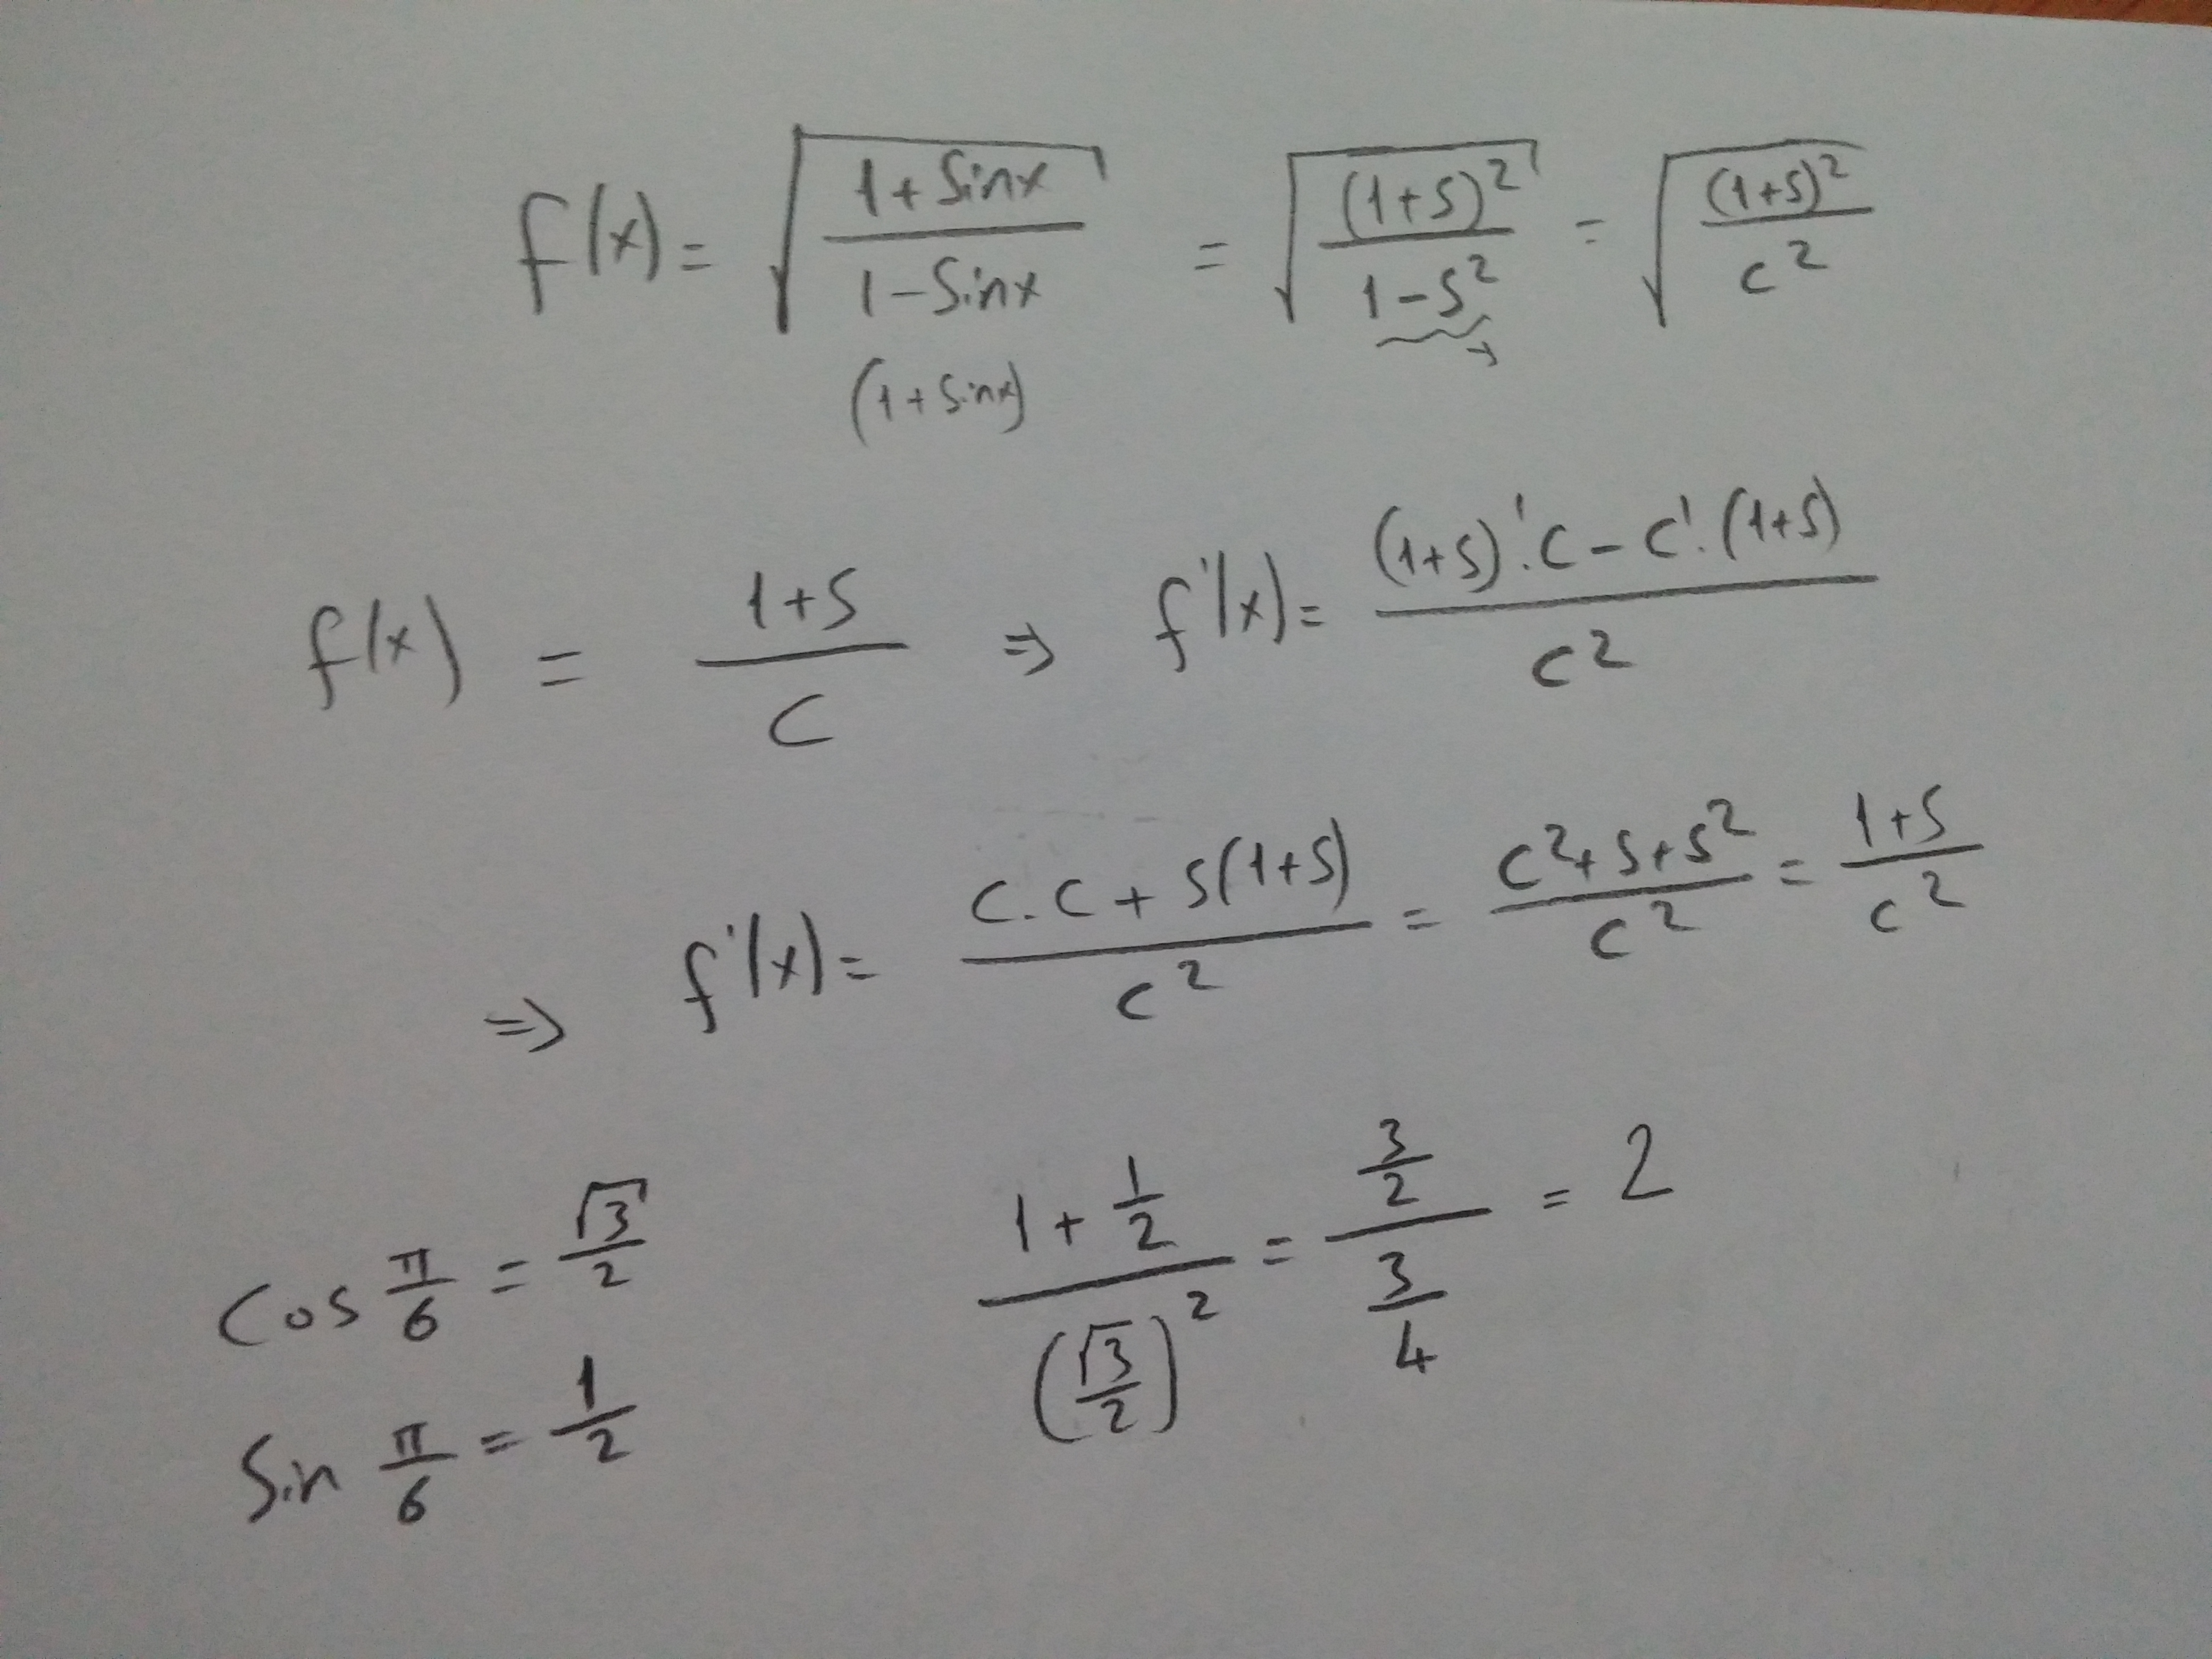 f(x) = √((1+Sinx)/(1-Sinx)) = √((1+S)²/(1-S²)) = √((1+S)²/c²)
(1+Sinx)
f(x) = (1+S)/C ⇒ f'(x) = ((1+S)'.C - C'.(1+S))/C²
⇒ f'(x) = (C.C + S(1+S))/C² = (C²+S+S²)/C² = (1+S)/C²
Cos π/6 = √3/2
(1+1/2)/(√3/2)² = (3/2)/(3/4) = 2
Sin π/6 = 1/2